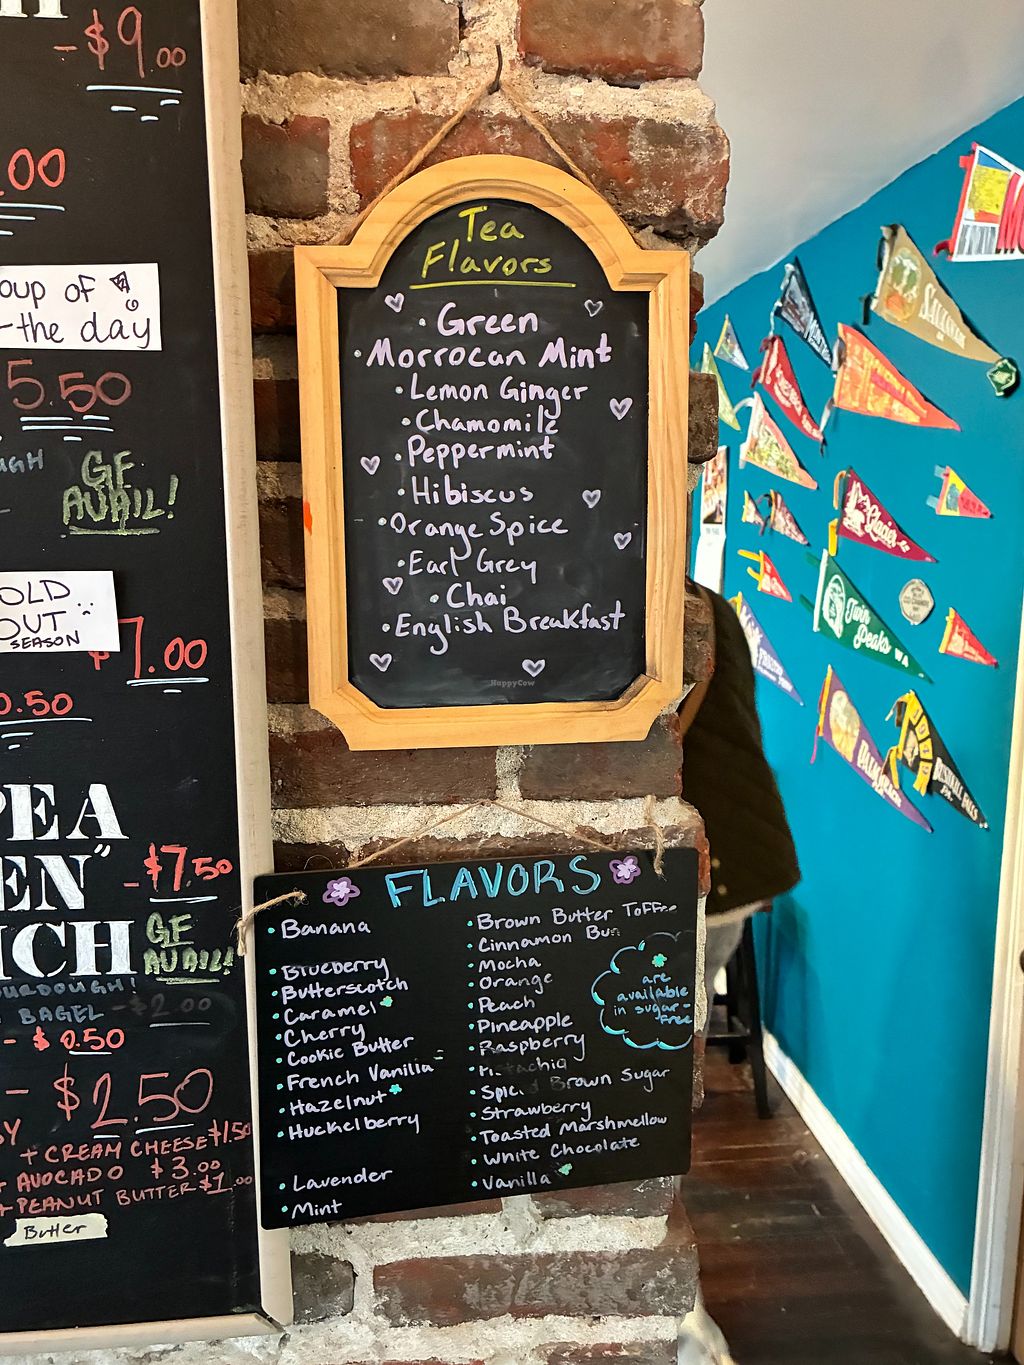 - $9.00
.00
oup of
the day
5.50
GF
AVAIL!
OLD
OUT
SEASON
7.00
0.50
PEA
EN" - $7.50
ICH GF
AVAIL!
OURDOUGH!
BAGEL - $2.00
- $0.50
- $2.50
+ CREAM CHEESE $1.50
+ AVOCADO $3.00
+ PEANUT BUTTER $1.00
Butter
Tea
Flavors
• Green
• Morrocan Mint
• Lemon Ginger
• Chamomile
• Peppermint
• Hibiscus
• Orange Spice
• Earl Grey
• Chai
• English Breakfast
HappyCow
FLAVORS
• Banana
• Blueberry
• Butterscotch
• Caramel
• Cherry
• Cookie Butter
• French Vanilla
• Hazelnut
• Huckelberry
• Lavender
• Mint
• Brown Butter Toffee
• Cinnamon Bun
• Mocha
• Orange
• Peach
• Pineapple
• Raspberry
• Pistachio
• Spiced Brown Sugar
• Strawberry
• Toasted Marshmellow
• White Chocolate
• Vanilla
are
available
in sugar-
free
Glacier
Twin
Peaks WA